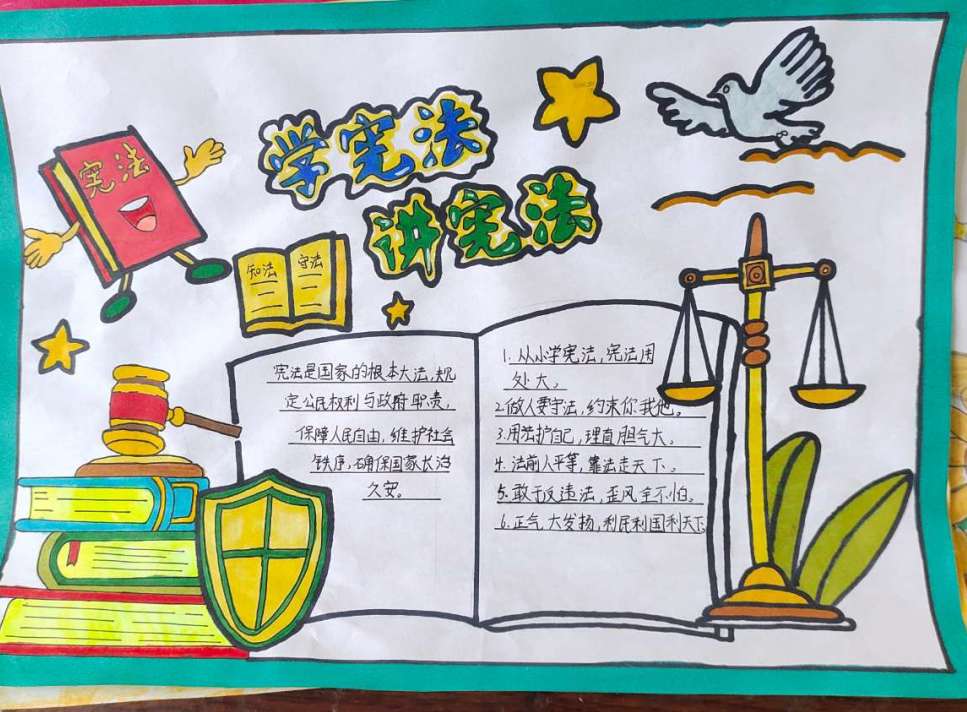 学宪法
讲宪法
宪法
知法
守法
宪法是国家的根本大法,规
定公民权利与政府职责,
保障人民自由,维护社会
秩序,确保国家长治
久安。
1.从小学宪法,宪法用
处大。
2.做人要守法,约束你我他。
3.用法护自己,理直胆气大。
4.法前人平等,靠法走天下。
5.敢于反违法,歪风全不怕。
6.正气大发扬,利民利国利天下